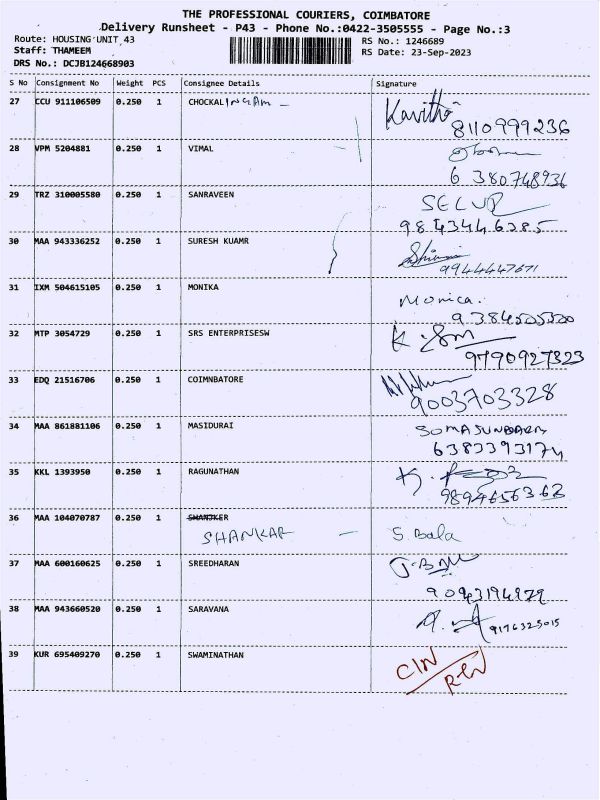 THE PROFESSIONAL COURIERS, COIMBATORE
Delivery Runsheet - P43 - Phone No.:0422-3505555 - Page No.:3
Route: HOUSING UNIT 43 RS No.: 1246689
Staff: THAMEEM RS Date: 23-Sep-2023
DRS No.: DCJB124668903
S No Consignment No Weight PCS Consignee Details Signature
27 CCU 911106509 0.250 1 CHOCKALINGAM - Kavitha
8110999236
28 VPM 5204881 0.250 1 VIMAL
6380748936
29 TRZ 310005580 0.250 1 SANRAVEEN SELVR
9843446385
30 MAA 943336252 0.250 1 SURESH KUAMR
9944447671
31 IXM 504615105 0.250 1 MONIKA Monica.
9384505300
32 MTP 3054729 0.250 1 SRS ENTERPRISESW
9790927323
33 EDQ 21516706 0.250 1 COIMNBATORE
9003703328
34 MAA 861881106 0.250 1 MASIDURAI SOMASUNDARM
6383393174
35 KKL 1393950 0.250 1 RAGUNATHAN
9894656362
36 MAA 104070787 0.250 1 SHANJKER
SHANKAR - S. Bala
37 MAA 600160625 0.250 1 SREEDHARAN
90943194979
38 MAA 943660520 0.250 1 SARAVANA
9176325015
39 KUR 695409270 0.250 1 SWAMINATHAN